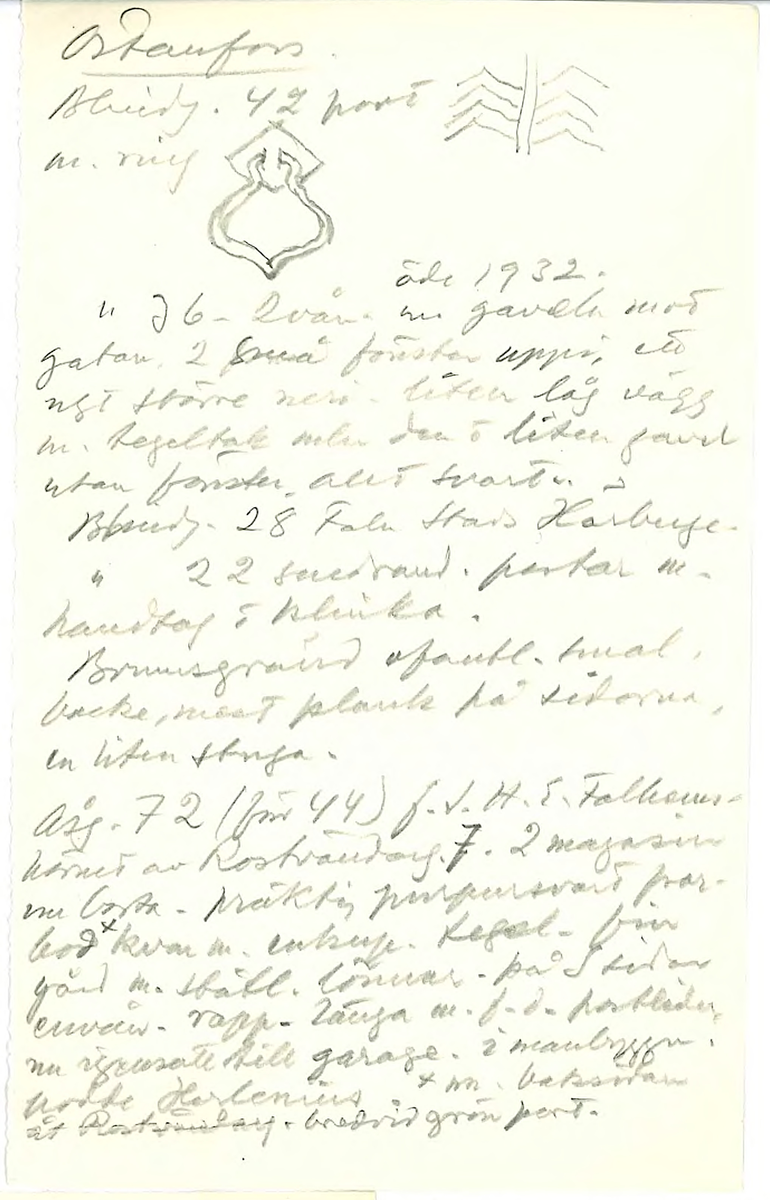 Östanfors.
Blindg. 42 port
m. ring
öde 1932.
" 36 - 2 vån. m gaveln mot
gatan. 2 små fönster uppe, ett
ngt större neri - liten låg vägg
m. tegeltak mln den o liten gavel
utan fönster, allt svart.
Blindg. 28 Falu Stads Härberge -
" 22 snedrand. portar m -
handtag o klinka.
Brunnsgränd ofantl. smal.
backe, mest plank på sidorna,
en liten stuga.
Åsg. 72 (förr 44) f. d. H. E.
hörnet av Rostvändareg. 7. 2 magasin
nu borta - präktig purpursvart por-
bod x kvar m. enkup. tegel - fin
gård m. ståtl. lönnar - på S sidan
envån. rapp. länga m. f. d. portlider,
nu igensatt till garage. i manbyggn.
bodde Horlenius x m. baksidan
åt Rostvändareg. bredvid grön port.